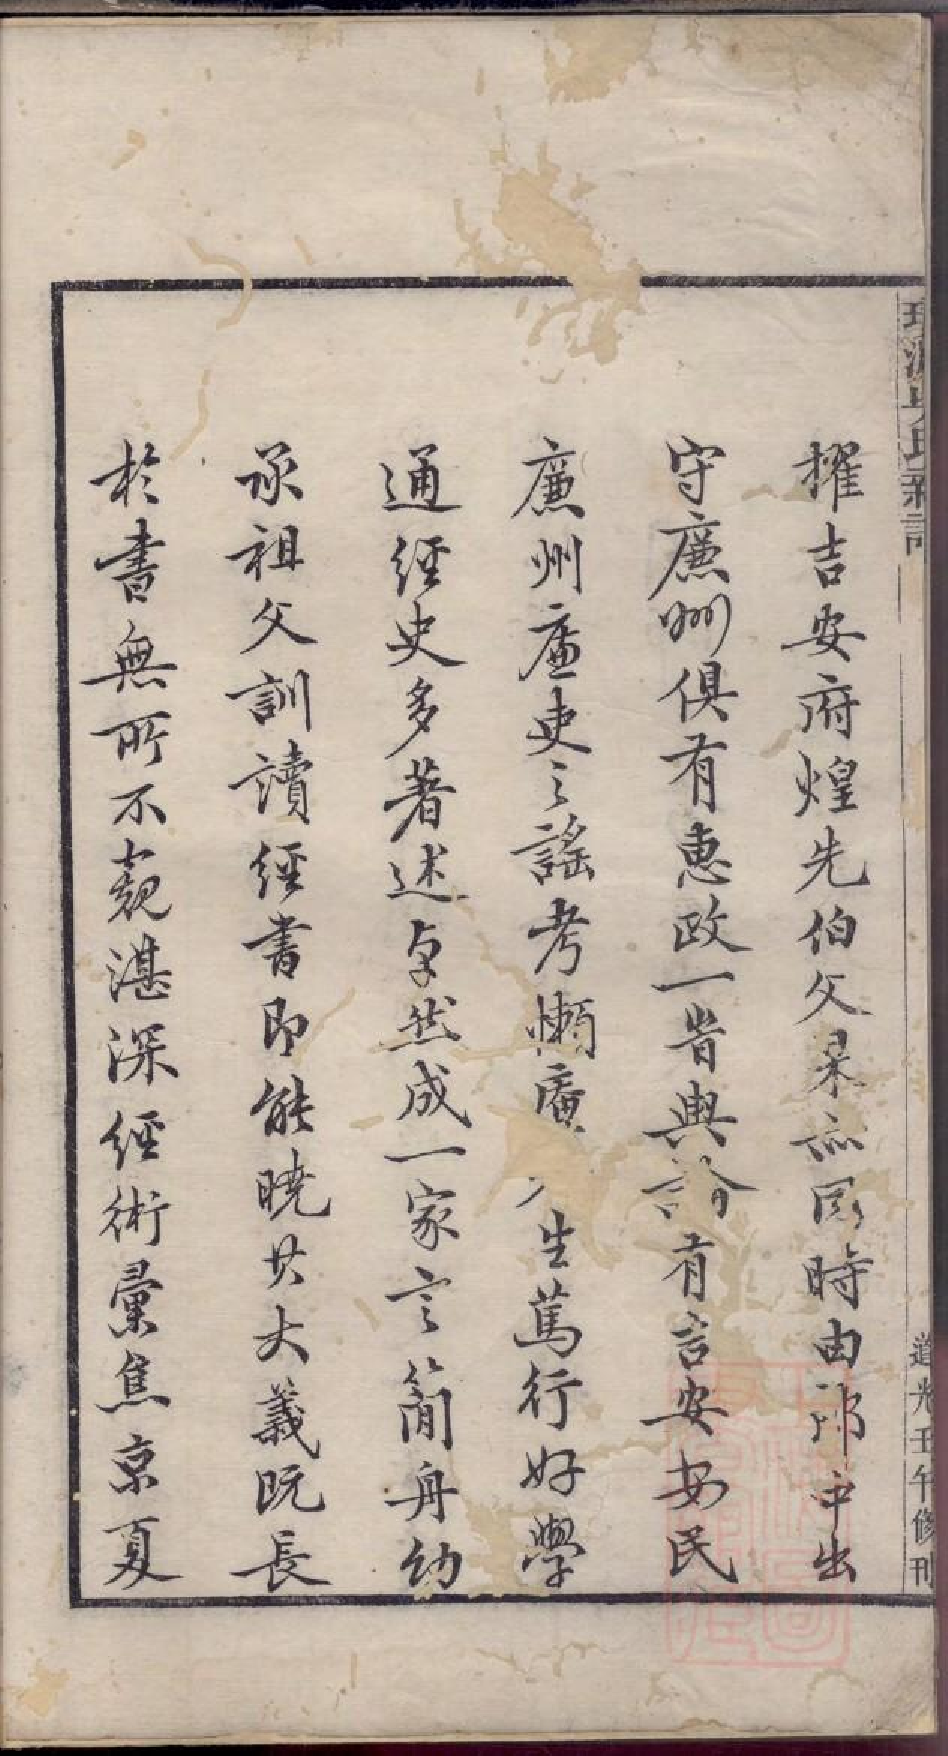 擢吉安府煌先伯父杲亦同時由部中出
守廉州俱有惠政一皆輿論有言安安民
廉州廉吏之謠考懶庵先生篤行好學
通經史多著述卓然成一家言簡舟幼
承祖父訓讀經書即能曉其大義既長
於書無所不窺湛深經術彙焦京夏
道光壬午修刊